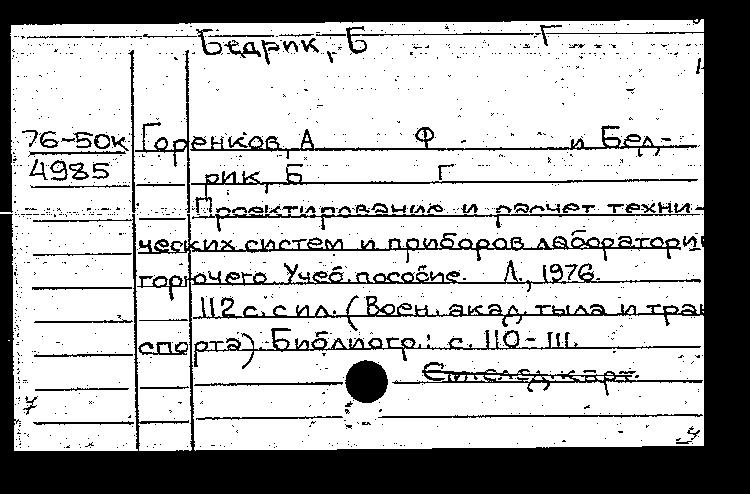 Бедрик, Б Г
76-50к Горенков, А Ф и Бед-
4985 рик, Б Г
Проектирование и расчет техни-
ческих систем и приборов лаборатории
горючего. Учеб. пособие. Л., 1976.
112 с. с ил. (Воен. акад. тыла и тран
спорта). Библиогр.: с. 110-111.
См. след. карт.
7